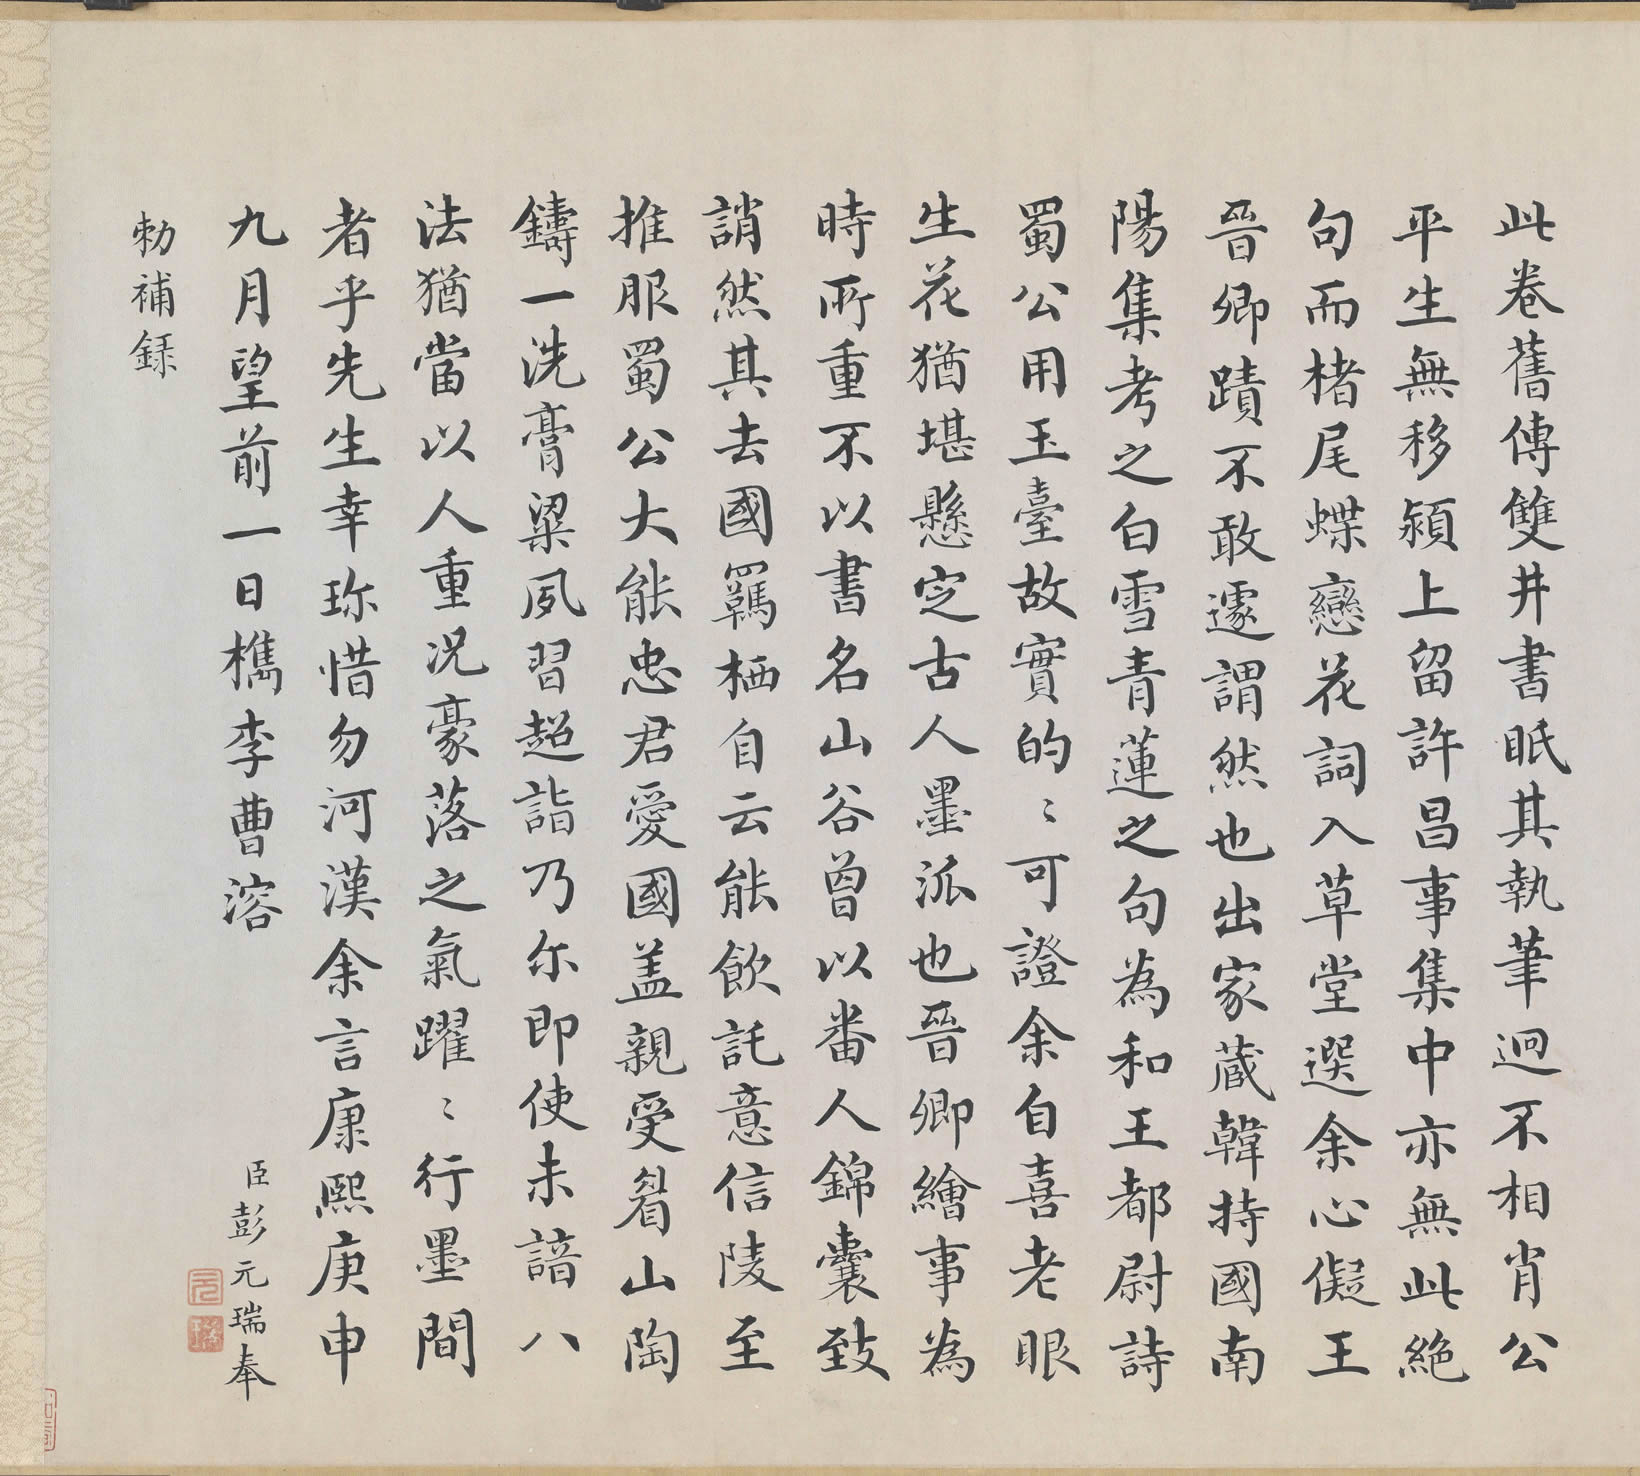 此卷舊傳雙井書眂其執筆迥不相肖公
平生無移潁上留許昌事集中亦無此絕
句而楮尾蝶戀花詞入草堂選余心儗王
晉卿蹟不敢遽謂然也出家蔵韓持國南
陽集考之白雪青蓮之句為和王都尉詩
蜀公用玉臺故實的〻可證余自喜老眼
生花猶堪懸定古人墨派也晉卿繪事為
時所重不以書名山谷曾以番人錦囊致
誚然其去國羈栖自云能飲託意信陵至
推服蜀公大能忠君愛國盖親受眉山陶
鑄一洗膏粱夙習超詣乃尔即使未諳八
法猶當以人重况豪落之氣躍〻行墨間
者乎先生幸珎惜勿河漢余言康熙庚申
九月望前一日檇李曹溶
臣彭元瑞奉
勅補録
元
瑞